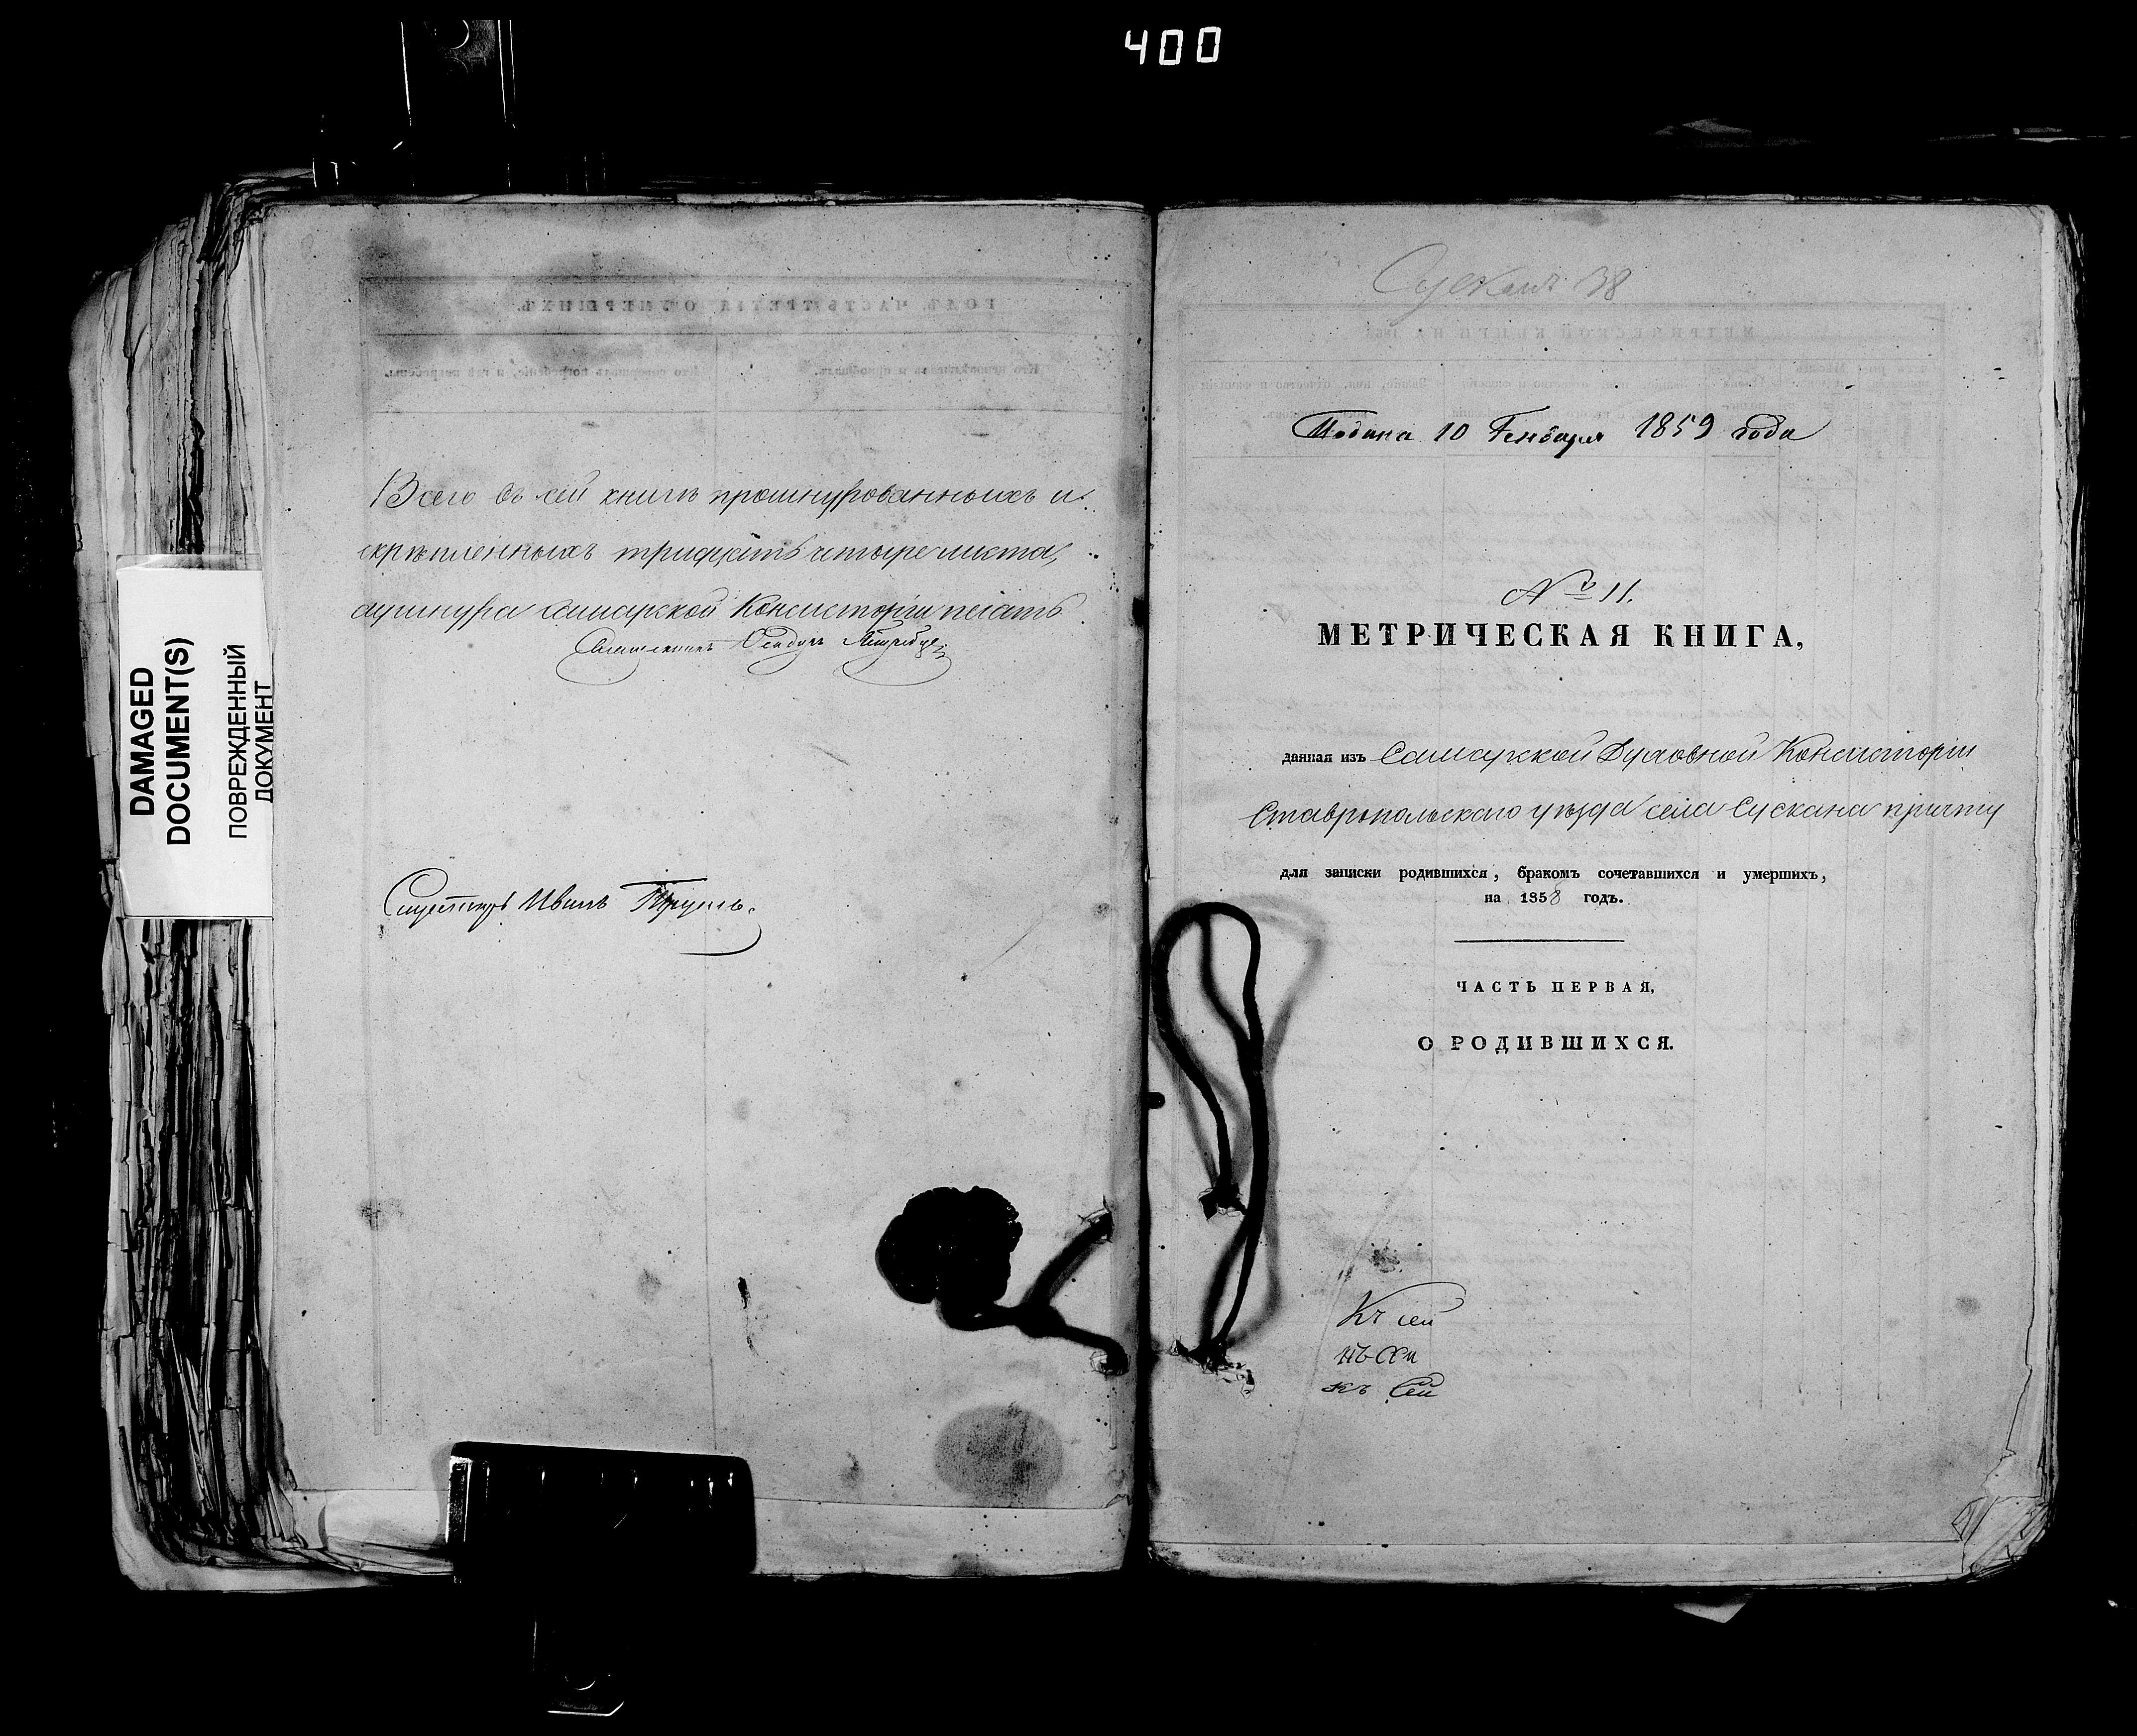 400
DAMAGED
DOCUMENT(S)
ПОВРЕЖДЕННЫЙ
ДОКУМЕНТ
Всего въ сей книгѣ прошнурованныхъ и
скрѣпленныхъ тридцать четыре листа,
Самарской Консисторіи печать
Секретарь Иванъ
Сускан 38
Подана 10 Генваря 1859 года
№ 11.
МЕТРИЧЕСКАЯ КНИГА,
данная изъ Самарской Духовной Консисторіи
Ставропольскаго уѣзда села Сускана причту
для записки родившихся, бракомъ сочетавшихся и умершихъ,
на 1858 годъ.
ЧАСТЬ ПЕРВАЯ,
О РОДИВШИХСЯ.
Къ сей
къ сей